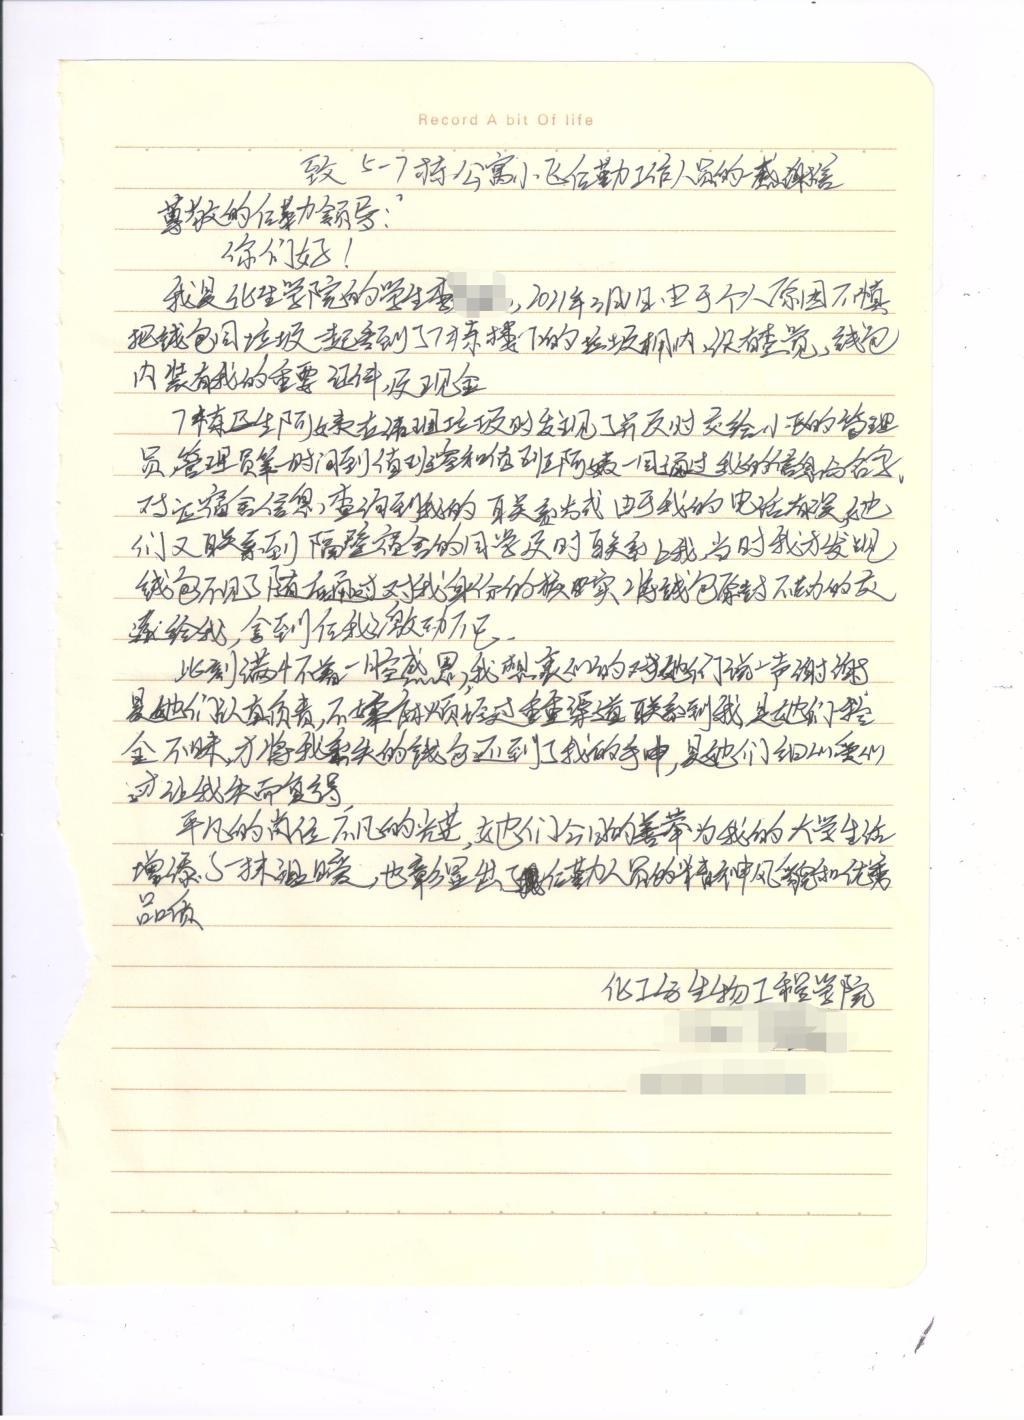 Record A bit Of life
致5-7栋公寓小区任勤工作人员的感谢信
尊敬的任勤领导：
你们好！
我是化生学院的学生李，2021年3月1日由于个人原因不慎
把钱包同垃圾一起丢到了7栋楼下的垃圾桶内，没有查觉，钱包
内装有我的重要证件，及现金
7栋卫生阿姨在清理垃圾时发现了并及时交给小区的管理
员，管理员第一时间到值班室和值班阿姨一同通过我的信息的名字，
对应宿舍信息，查询到我的联系方式由于我的电话有误，她
们又联系到隔壁宿舍的同学及时联系上我，当时我才发现，
钱包不见了随后通过对我身份的核实，将钱包原封不动的交
还给我，拿到后我激动不已。
此刻满怀着一腔感恩，我想衷心的对她们说一声谢谢
是她们认真负责，不嫌麻烦经过重重渠道联系到我，是她们拾
金不昧，才将我丢失的钱包还到了我的手中，是她们细心要心
才让我失而复得
平凡的岗位不凡的光芒，她们今日的善举为我的大学生活
增添了一抹温暖，也彰显出了任勤人员的精神风貌和优秀
品质
化工与生物工程学院